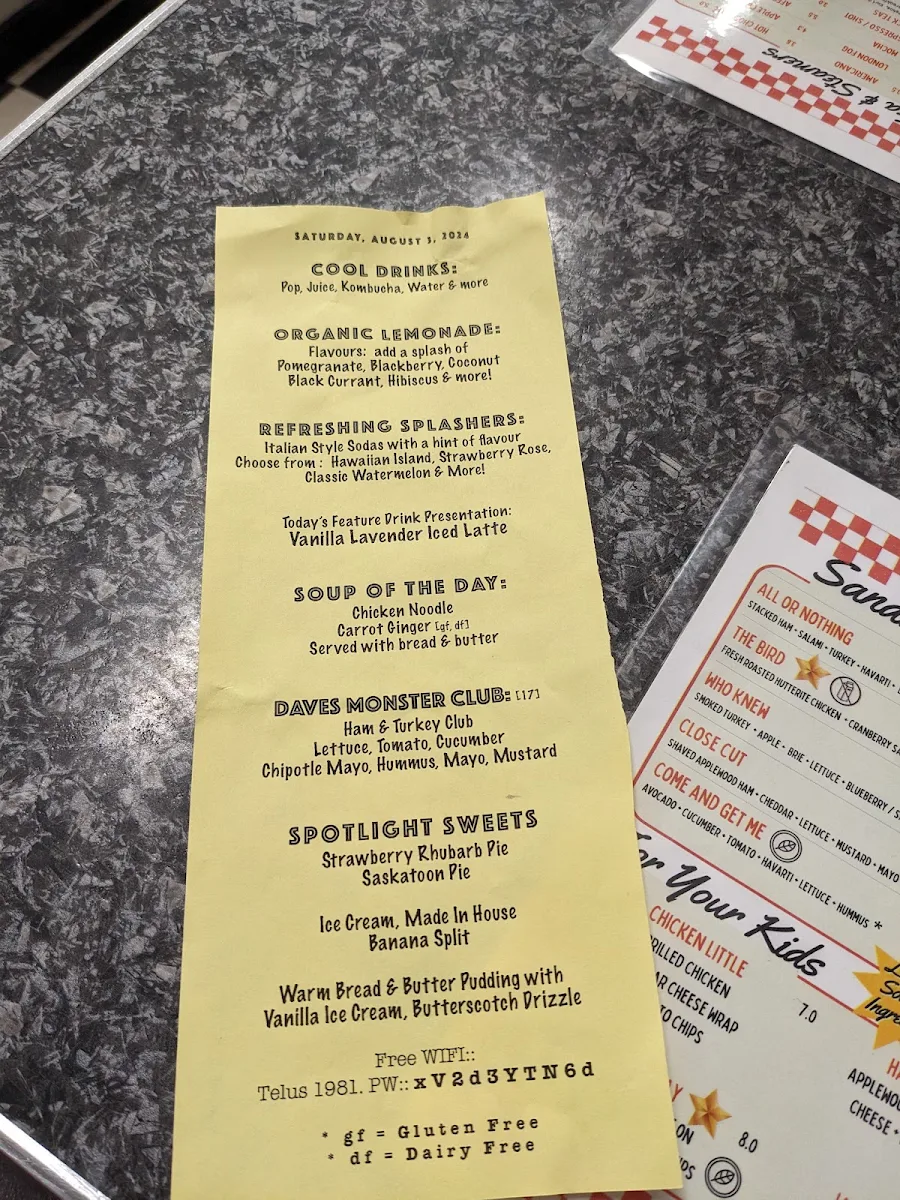 SATURDAY, AUGUST 3, 2024
COOL DRINKS:
Pop, Juice, Kombucha, Water & more
ORGANIC LEMONADE:
Flavours: add a splash of
Pomegranate, Blackberry, Coconut
Black Currant, Hibiscus & more!
REFRESHING SPLASHERS:
Italian Style Sodas with a hint of flavour
Choose from : Hawaiian Island, Strawberry Rose,
Classic Watermelon & More!
Today's Feature Drink Presentation:
Vanilla Lavender Iced Latte
SOUP OF THE DAY:
Chicken Noodle
Carrot Ginger [gf, df]
Served with bread & butter
DAVES MONSTER CLUB: [17]
Ham & Turkey Club
Lettuce, Tomato, Cucumber
Chipotle Mayo, Hummus, Mayo, Mustard
SPOTLIGHT SWEETS
Strawberry Rhubarb Pie
Saskatoon Pie
Ice Cream, Made In House
Banana Split
Warm Bread & Butter Pudding with
Vanilla Ice Cream, Butterscotch Drizzle
Free WIFI::
Telus 1981. PW:: xV2d3YTN6d
* gf = Gluten Free
* df = Dairy Free
& Steamers
AMERICANO
LONDON FOG
MOCHA
ESPRESSO / SHOT
HOT
APPLE
ALL OR NOTHING
STACKED HAM • SALAMI • TURKEY • HAVARTI •
THE BIRD
FRESH ROASTED HUTTERITE CHICKEN • CRANBERRY
WHO KNEW
SMOKED TURKEY • APPLE • BRIE • LETTUCE • BLUEBERRY /
CLOSE CUT
SHAVED APPLEWOOD HAM • CHEDDAR • LETTUCE • MUSTARD • MAYO
COME AND GET ME
AVOCADO • CUCUMBER • TOMATO • HAVARTI • LETTUCE • HUMMUS *
For Your Kids
CHICKEN LITTLE
GRILLED CHICKEN
CHEESE WRAP
CHIPS
7.0
8.0
CHEESE •